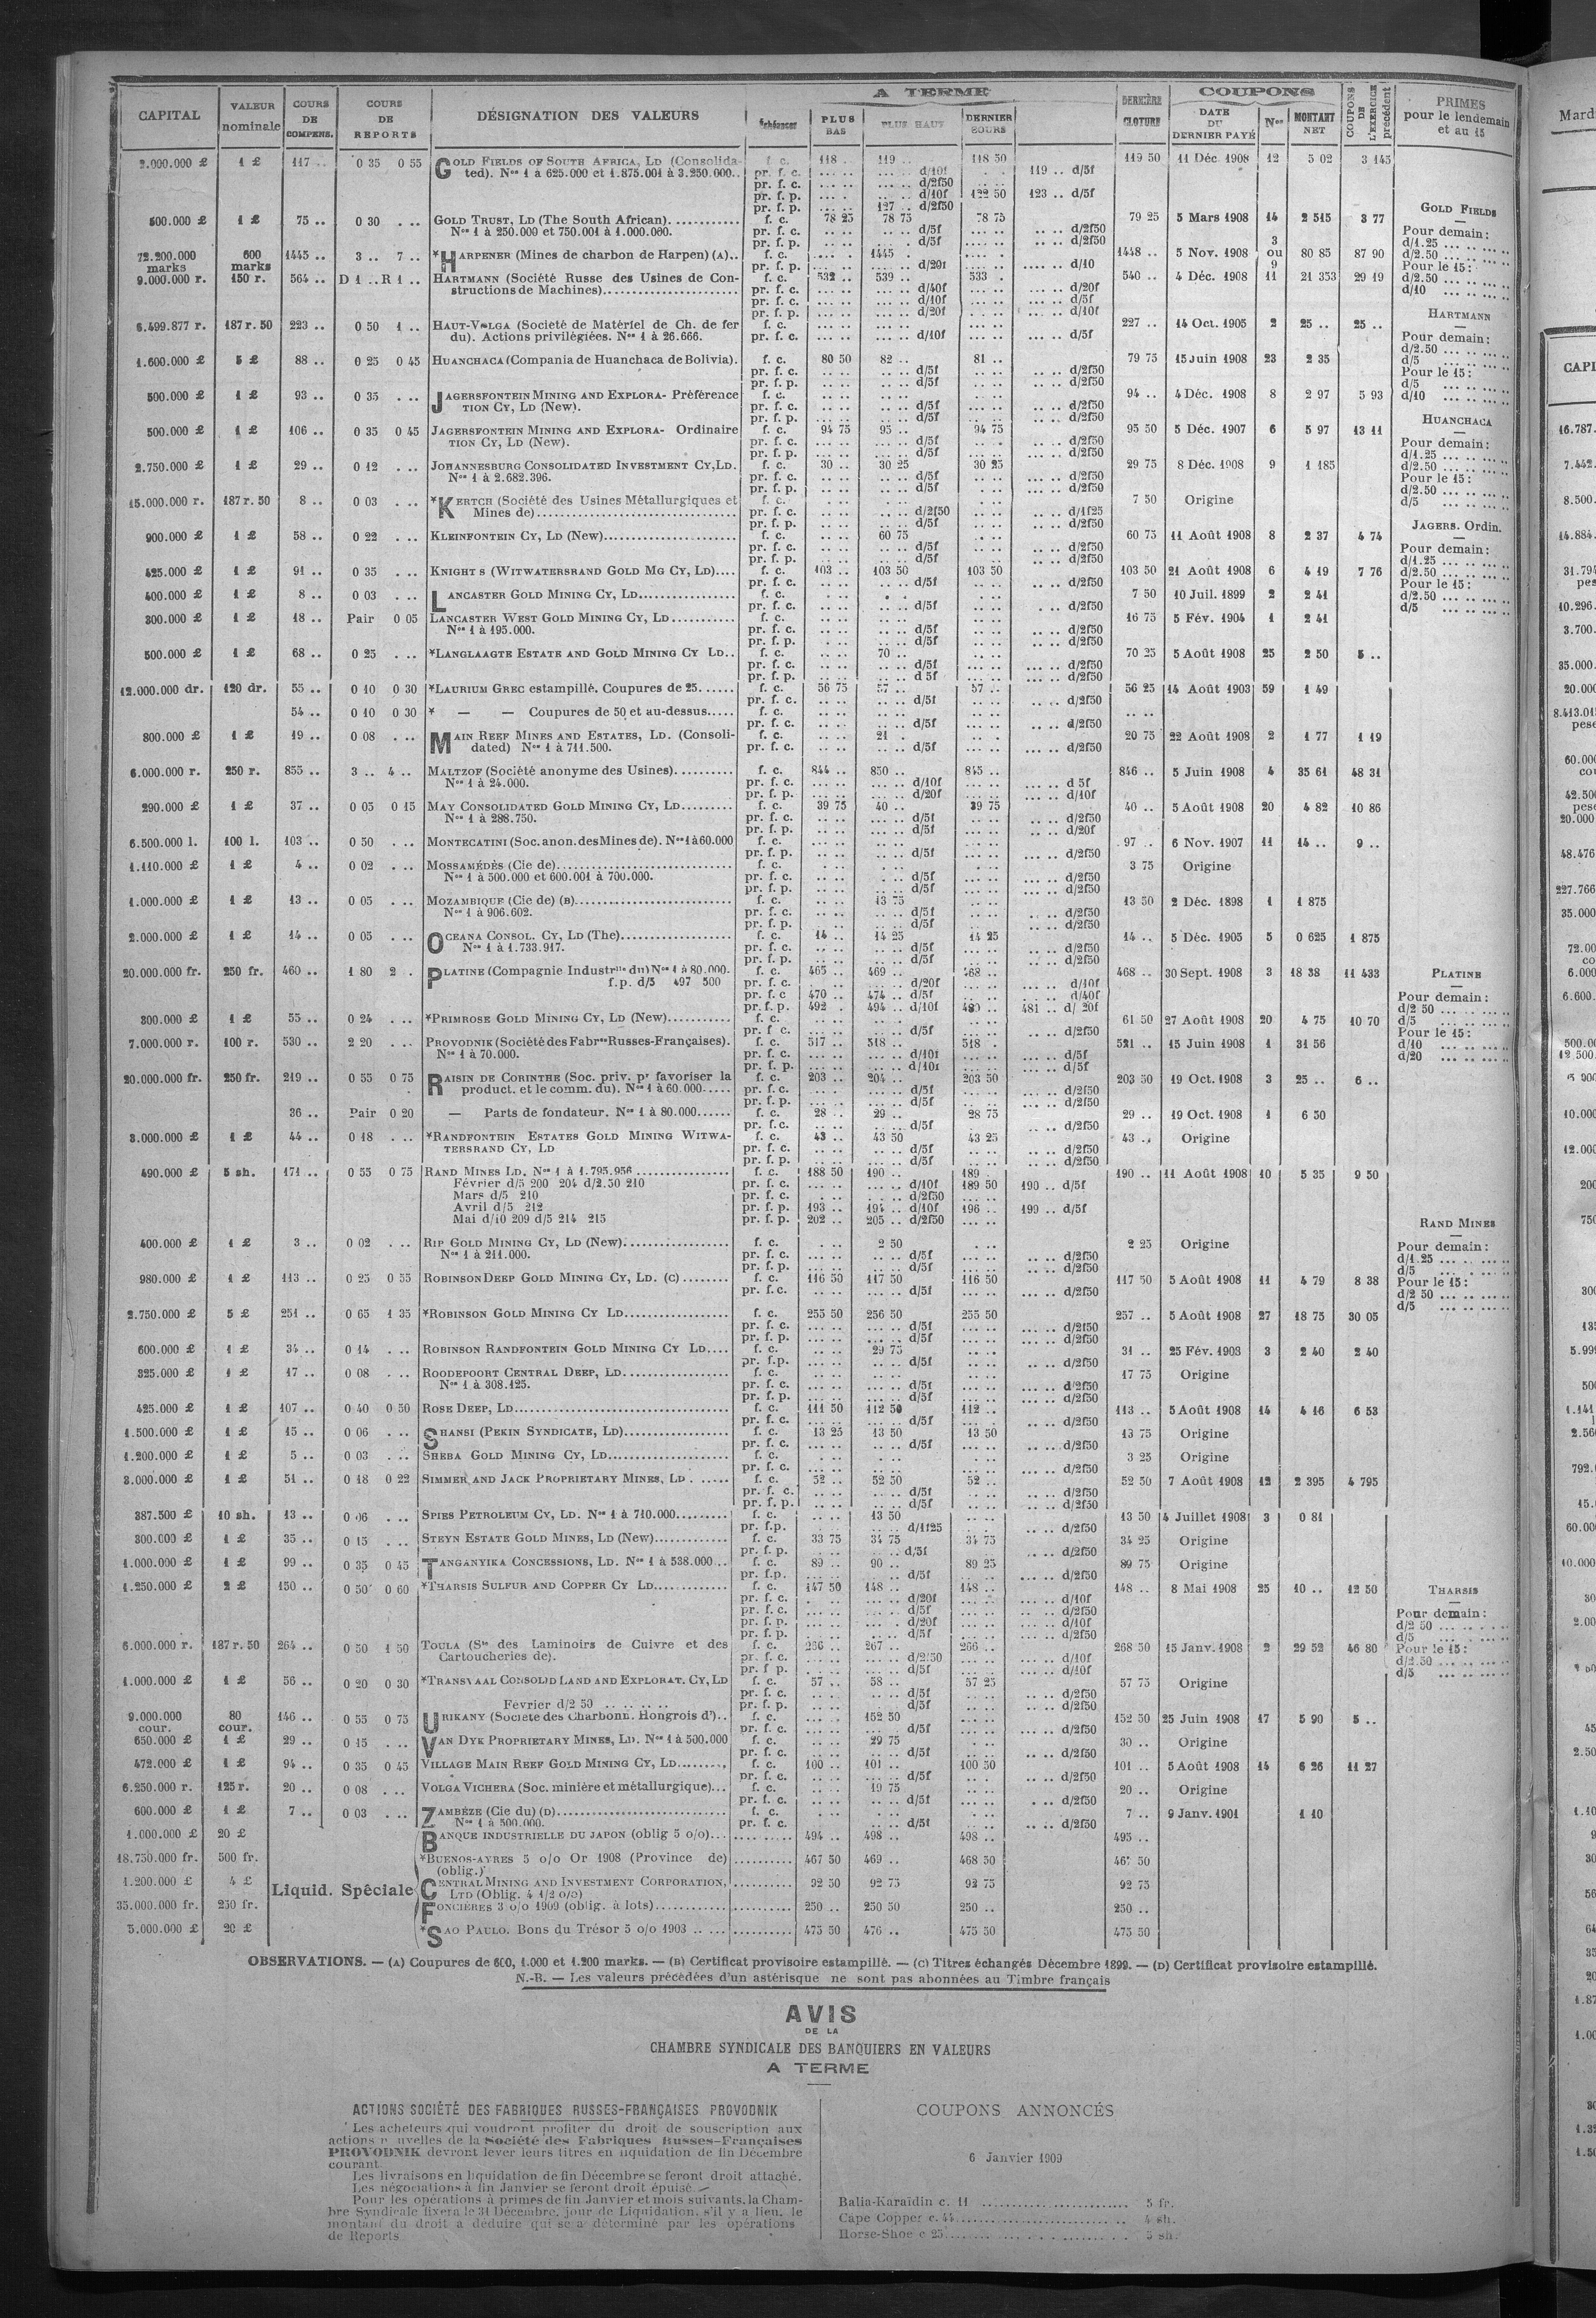 CAPITAL | VALEUR nominale | COURS DE COMPENS. | COURS DE REPORTS | DÉSIGNATION DES VALEURS | Échéances | A TERME | PLUS BAS | PLUS HAUT | DERNIER COURS | DERNIÈRE CLOTURE | COUPONS | DATE DU DERNIER PAYÉ | Nos | MONTANT NET | COUPONS DE L'EXERCICE précédent | PRIMES pour le lendemain et au 15
2.000.000 £ 1 £ 117 .. 0 35 0 55 GOLD FIELDS OF SOUTH AFRICA, LD (Consolida- f. c. 118 .. 119 .. 118 50 119 50 11 Déc. 1908 12 5 02 3 145
ted). Nos 1 à 625.000 et 1.875.001 à 3.250.000.. pr. f. c. d/10f 119 .. d/5f
pr. f. c. d/2f50
pr. f. p. d/10f 122 50 123 .. d/5f
pr. f. p. 127 .. d/2f50
500.000 £ 1 £ 75 .. 0 30 GOLD TRUST, LD (The South African) f. c. 78 25 78 75 78 75 79 25 5 Mars 1908 14 2 515 3 77
Nos 1 à 250.000 et 750.001 à 1.000.000. pr. f. c. d/5f d/2f50
pr. f. p. d/5f d/2f50
72.200.000 marks 600 marks 1445 .. 3 .. 7 .. *HARPENER (Mines de charbon de Harpen) (A).. f. c. 1445 . 1448 .. 5 Nov. 1908 3 ou 9 80 85 87 90
pr. f. p. d/20f d/10
9.000.000 r. 150 r. 564 .. D 1 ..R 1 .. HARTMANN (Société Russe des Usines de Con- f. c. 532 .. 539 .. 533 . 540 .. 4 Déc. 1908 11 21 353 29 19
structions de Machines) pr. f. c. d/40f d/20f
pr. f. c. d/10f d/5f
pr. f. p. d/20f d/10f
6.499.877 r. 187 r. 50 223 .. 0 50 1 .. HAUT-VOLGA (Societé de Matériel de Ch. de fer f. c. 227 .. 14 Oct. 1905 2 25 .. 25 ..
du). Actions privilégiées. Nos 1 à 26.666. pr. f. c. d/10f d/5f
1.600.000 £ 5 £ 88 .. 0 25 0 45 HUANCHACA (Compania de Huanchaca de Bolivia). f. c. 80 50 82 .. 81 .. 79 75 15 Juin 1908 23 2 35
pr. f. c. d/5f d/2f50
pr. f. p. d/5f d/2f50
500.000 £ 1 £ 93 .. 0 35 JAGERSFONTEIN MINING AND EXPLORA- Préférence f. c. 94 .. 4 Déc. 1908 8 2 97 5 93
TION CY, LD (New). pr. f. c. d/5f d/2f50
pr. f. p. d/5f d/2f50
500.000 £ 1 £ 106 .. 0 35 0 45 JAGERSFONTEIN MINING AND EXPLORA- Ordinaire f. c. 94 75 95 .. 94 75 95 50 5 Déc. 1907 6 5 97 13 11
TION CY, LD (New). pr. f. c. d/5f d/2f50
pr. f. p. d/5f d/2f50
2.750.000 £ 1 £ 29 .. 0 12 JOHANNESBURG CONSOLIDATED INVESTMENT CY, LD. f. c. 30 .. 30 25 30 25 29 75 8 Déc. 1908 9 1 185
Nos 1 à 2.682.396. pr. f. c. d/5f d/2f50
pr. f. p. d/5f d/2f50
15.000.000 r. 187 r. 50 8 .. 0 03 *KERTCH (Société des Usines Métallurgiques et f. c. 7 50 Origine
Mines de) pr. f. c. d/2f50 d/1f25
pr. f. p. d/5f d/2f50
900.000 £ 1 £ 58 .. 0 22 KLEINFONTEIN CY, LD (New) f. c. 60 75 60 75 11 Août 1908 8 2 37 4 74
pr. f. c. d/5f d/2f50
pr. f. p. d/5f d/2f50
425.000 £ 1 £ 91 .. 0 35 KNIGHT S (WITWATERSRAND GOLD MG CY, LD).... f. c. 103 .. 103 50 103 50 103 50 21 Août 1908 6 4 19 7 76
pr. f. c. d/5f d/2f50
400.000 £ 1 £ 8 .. 0 03 LANCASTER GOLD MINING CY, LD f. c. 7 50 10 Juil. 1899 2 2 41
pr. f. c. d/5f d/2f50
300.000 £ 1 £ 18 .. Pair 0 05 LANCASTER WEST GOLD MINING CY, LD f. c. 16 75 5 Fév. 1904 1 2 41
Nos 1 à 195.000. pr. f. c. d/5f d/2f50
pr. f. p. d/5f d/2f50
500.000 £ 1 £ 68 .. 0 25 *LANGLAAGTE ESTATE AND GOLD MINING CY LD.. f. c. 70 .. 70 25 5 Août 1908 25 2 50 5 ..
pr. f. c. d/5f d/2f50
pr. f. p. d 5f d/2f50
12.000.000 dr. 120 dr. 55 .. 0 10 0 30 *LAURIUM GREC estampillé. Coupures de 25 f. c. 56 75 57 .. 57 .. 56 25 14 Août 1903 59 1 49
pr. f. c. d/5f d/2f50
54 .. 0 10 0 30 * — — Coupures de 50 et au-dessus f. c.
pr. f. c. d/5f d/2f50
800.000 £ 1 £ 19 .. 0 08 MAIN REEF MINES AND ESTATES, LD. (Consoli- f. c. 21 . 20 75 22 Août 1908 2 1 77 1 19
dated) Nos 1 à 711.500. pr. f. c. d/5f d/2f50
6.000.000 r. 250 r. 855 .. 3 .. 4 .. MALTZOF (Société anonyme des Usines) f. c. 844 .. 850 .. 845 .. 846 .. 5 Juin 1908 4 35 61 48 31
Nos 1 à 24.000. pr. f. c. d/10f d 5f
pr. f. p. d/20f d/10f
290.000 £ 1 £ 37 .. 0 05 0 15 MAY CONSOLIDATED GOLD MINING CY, LD f. c. 39 75 40 .. 39 75 40 .. 5 Août 1908 20 4 82 10 86
Nos 1 à 288.750. pr. f. c. d/5f d/2f50
pr. f. p. d/5f d/20f
6.500.000 l. 100 l. 103 .. 0 50 MONTECATINI (Soc. anon. des Mines de). Nos 1 à 60.000 f. c. 97 .. 6 Nov. 1907 11 14 .. 9 ..
pr. f. p. d/5f d/2f50
1.110.000 £ 1 £ 4 .. 0 02 MOSSAMÉDÈS (Cie de) f. c. 3 75 Origine
Nos 1 à 500.000 et 600.001 à 700.000. pr. f. c. d/5f d/2f50
pr. f. p. d/5f d/2f50
1.000.000 £ 1 £ 13 .. 0 05 MOZAMBIQUE (Cie de) (B) f. c. 13 75 13 50 2 Déc. 1898 1 1 875
Nos 1 à 906.602. pr. f. c. d/5f d/2f50
pr. f. p. d/5f d/2f50
2.000.000 £ 1 £ 14 .. 0 05 OCEANA CONSOL. CY, LD (The) f. c. 14 .. 14 25 14 25 14 .. 5 Déc. 1905 5 0 625 1 875
Nos 1 à 1.733.917. pr. f. c. d/5f d/2f50
pr. f. p. d/5f d/2f50
20.000.000 fr. 250 fr. 460 .. 1 80 2 . PLATINE (Compagnie Industrlle du) Nos 1 à 80.000. f. c. 465 .. 469 .. 468 .. 468 .. 30 Sept. 1908 3 18 38 11 433
f.p. d/5 497 500 pr. f. c. d/20f d/10f
pr. f. c 470 .. 474 .. d/5f d/40f
pr. f. p. 492 . 494 .. d/10f 480 .. 481 .. d/ 20f
300.000 £ 1 £ 55 .. 0 24 *PRIMROSE GOLD MINING CY, LD (New) f. c. 61 50 27 Août 1908 20 4 75 10 70
pr. f c. d/5f d/2f50
7.000.000 r. 100 r. 530 .. 2 20 PROVODNIK (Société des Fabres Russes-Françaises). f. c. 517 .. 518 .. 518 . 521 .. 15 Juin 1908 1 31 56
Nos 1 à 70.000. pr. f. c. d/10f d/5f
pr. f. p. d/10f d/5f
20.000.000 fr. 250 fr. 219 .. 0 55 0 75 RAISIN DE CORINTHE (Soc. priv. pr favoriser la f. c. 203 .. 204 .. 203 50 203 50 19 Oct. 1908 3 25 .. 6 ..
product. et le comm. du). Nos 1 à 60.000 pr. f. c. d/5f d/2f50
pr. f. p. d/5f d/2f50
36 .. Pair 0 20 — Parts de fondateur. Nos 1 à 80.000 f. c. 28 .. 29 .. 28 75 29 .. 19 Oct. 1908 1 6 50
pr. f.c. d/5f d/2f50
3.000.000 £ 1 £ 44 .. 0 18 *RANDFONTEIN ESTATES GOLD MINING WITWA- f. c. 43 .. 43 50 43 25 43 .. Origine
TERSRAND CY, LD pr. f. c. d/5f d/2f50
pr. f. p. d/5f d/2f50
490.000 £ 5 sh. 171 .. 0 55 0 75 RAND MINES LD. Nos 1 à 1.795.956 f. c. 188 50 190 .. 189 190 .. 11 Août 1908 10 5 35 9 50
Février d/5 200 204 d/2.50 210 pr. f. c. d/10f 189 50 190 .. d/5f
Mars d/5 210 pr. f. c. d/2f50
Avril d/5 212 pr. f. p. 193 .. 194 .. d/10f 196 .. 199 .. d/5f
Mai d/10 209 d/5 214 215 pr. f. p. 202 .. 205 .. d/2f50
400.000 £ 1 £ 3 .. 0 02 RIP GOLD MINING CY, LD (New) f. c. 2 50 2 25 Origine
Nos 1 à 211.000. pr. f. c. d/5f d/2f50
pr. f. p. d/5f d/2f50
980.000 £ 1 £ 113 .. 0 25 0 55 ROBINSON DEEP GOLD MINING CY, LD. (C) f. c. 116 50 117 50 116 50 117 50 5 Août 1908 11 4 79 8 38
pr. f.c. d/5f d/2f50
2.750.000 £ 5 £ 251 .. 0 65 1 35 *ROBINSON GOLD MINING CY LD f. c. 255 50 256 50 255 50 257 .. 5 Août 1908 27 18 75 30 05
pr. f. c. d/5f d/2f50
pr. f. p. d/5f d/2f50
600.000 £ 1 £ 34 .. 0 14 ROBINSON RANDFONTEIN GOLD MINING CY LD.... f. c. 29 75 31 .. 25 Fév. 1908 3 2 40 2 40
pr. f.p. d/5f d/2f50
325.000 £ 1 £ 17 .. 0 08 ROODEPOORT CENTRAL DEEP, LD f. c. 17 75 Origine
Nos 1 à 308.125. pr. f. c. d/5f d/2f50
pr. f. p. d/5f d/2f50
425.000 £ 1 £ 107 .. 0 40 0 50 ROSE DEEP, LD f. c. 111 50 112 50 112 .. 113 .. 5 Août 1908 14 4 16 6 53
pr. f. c. d/5f d/2f50
1.500.000 £ 1 £ 15 .. 0 06 SHANSI (PEKIN SYNDICATE, LD) f. c. 13 25 13 50 13 50 13 75 Origine
pr. f. c. d/5f d/2f50
1.200.000 £ 1 £ 5 .. 0 03 SHEBA GOLD MINING CY, LD f. c. 3 25 Origine
pr. f. c. d/2f50
3.000.000 £ 1 £ 51 .. 0 18 0 22 SIMMER AND JACK PROPRIETARY MINES, LD f. c. 52 .. 52 50 52 .. 52 50 7 Août 1908 12 2 395 4 795
pr. f. c. d/5f d/2f50
pr. f. p. d/5f d/2f50
387.500 £ 10 sh. 13 .. 0 06 SPIES PETROLEUM CY, LD. Nos 1 à 710.000 f. c. 13 50 13 50 4 Juillet 1908 3 0 81
pr. f.p. d/1f25 d/2f50
300.000 £ 1 £ 35 .. 0 15 STEYN ESTATE GOLD MINES, LD (New) f. c. 33 75 34 75 34 75 34 25 Origine
pr. f. p. d/5f d/2f50
1.000.000 £ 1 £ 99 .. 0 35 0 45 TANGANYIKA CONCESSIONS, LD. Nos 1 à 538.000... f. c. 89 .. 90 .. 89 25 89 75 Origine
pr. f.p. d/5f d/2f50
1.250.000 £ 2 £ 150 .. 0 50 0 60 *THARSIS SULFUR AND COPPER CY LD f. c. 147 50 148 .. 148 .. 148 .. 8 Mai 1908 25 10 .. 12 50
pr. f. c. d/20f d/10f
pr. f. c. d/5f d/2f50
pr. f. p. d/20f d/10f
pr. f. p. d/5f d/2f50
6.000.000 r. 187 r. 50 264 .. 0 50 1 50 TOULA (Sté des Laminoirs de Cuivre et des f. c. 266 .. 267 .. 266 .. 268 50 15 Janv. 1908 2 29 52 46 80
Cartoucheries de). pr. f. c. d/2f50 d/10f
pr. f p. d/5f d/10f
1.000.000 £ 1 £ 56 .. 0 20 0 30 *TRANSVAAL CONSOLID LAND AND EXPLORAT. CY, LD f. c. 57 .. 58 .. 57 25 57 75 Origine
pr. f. c. d/5f d/2f50
Février d/2 50 pr. f. p. d/5f d/2f50
9.000.000 cour. 80 cour. 146 .. 0 55 0 75 URIKANY (Société des Charbonn. Hongrois d').. f. c. 152 50 152 50 25 Juin 1908 17 5 90 5 ..
pr. f. c. d/5f d/2f50
650.000 £ 1 £ 29 .. 0 15 VAN DYK PROPRIETARY MINES, LD. Nos 1 à 500.000 f. c. 29 75 30 .. Origine
pr. f. c. d/5f d/2f50
472.000 £ 1 £ 94 .. 0 35 0 45 VILLAGE MAIN REEF GOLD MINING CY, LD f. c. 100 .. 101 .. 100 50 101 .. 5 Août 1908 14 6 26 11 27
pr. f. c. d/5f d/2f50
6.250.000 r. 125 r. 20 .. 0 08 VOLGA VICHERA (Soc. minière et métallurgique)... f. c. 19 75 20 .. Origine
pr. f. c. d/5f d/2f50
600.000 £ 1 £ 7 .. 0 03 ZAMBÈZE (Cie du) (D) f. c. 7 .. 9 Janv. 1901 1 10
Nos 1 à 500.000. pr. f. c. d/5f d/2f50
Liquid. Spéciale
1.000.000 £ 20 £ BANQUE INDUSTRIELLE DU JAPON (oblig 5 o/o)... 494 .. 498 .. 498 .. 495 ..
18.750.000 fr. 500 fr. *BUENOS-AYRES 5 o/o Or 1908 (Province de) 467 50 469 .. 468 50 467 50
(oblig.)
1.200.000 £ 4 £ CENTRAL MINING AND INVESTMENT CORPORATION, 92 50 92 75 92 75 92 75
LTD (Oblig. 4 1/2 o/o)
35.000.000 fr. 250 fr. FONCIÈRES 3 o/o 1909 (oblig. à lots) 250 .. 250 50 250 .. 250 ..
5.000.000 £ 20 £ *SAO PAULO. Bons du Trésor 5 o/o 1903 475 50 476 .. 475 50 475 50
GOLD FIELDS
Pour demain:
d/1.25
d/2.50
Pour le 15:
d/2.50
d/10
HARTMANN
Pour demain:
d/2.50
d/5
Pour le 15:
d/5
d/10
HUANCHACA
Pour demain:
d/1.25
d/2.50
Pour le 15:
d/2.50
d/5
JAGERS. Ordin.
Pour demain:
d/1.25
d/2.50
Pour le 15:
d/2.50
d/5
PLATINE
Pour demain:
d/2 50
d/5
Pour le 15:
d/10
d/20
RAND MINES
Pour demain:
d/1.25
d/5
Pour le 15:
d/2 50
d/5
THARSIS
Pour demain:
d/2 50
d/5
Pour le 15:
d/2.50
d/5
OBSERVATIONS. — (A) Coupures de 600, 1.000 et 1.200 marks. — (B) Certificat provisoire estampillé. — (C) Titres échangés Décembre 1899. — (D) Certificat provisoire estampillé.
N.-B. — Les valeurs précédées d'un astérisque ne sont pas abonnées au Timbre français
AVIS
DE LA
CHAMBRE SYNDICALE DES BANQUIERS EN VALEURS
A TERME
ACTIONS SOCIÉTÉ DES FABRIQUES RUSSES-FRANÇAISES PROVODNIK
Les acheteurs qui voudront profiter du droit de souscription aux
actions n uvelles de la Société des Fabriques Russes-Françaises
PROVODNIK devront lever leurs titres en liquidation de fin Décembre
courant.
Les livraisons en liquidation de fin Décembre se feront droit attaché.
Les négociations à fin Janvier se feront droit épuisé.
Pour les opérations à primes de fin Janvier et mois suivants, la Cham-
bre Syndicale fixera le 31 Décembre, jour de Liquidation, s'il y a lieu, le
montant du droit à déduire qui se a déterminé par les opérations
de Reports
COUPONS ANNONCÉS
6 Janvier 1909
Balia-Karaïdin c. 11 5 fr.
Cape Copper c. 44 4 sh.
Horse-Shoe c 25 5 sh.
Mard
CAPI
16.787.
7.442.
8.500.
14.884.
31.794
pes
10.296.
3.700.
35.000.
20.000
8.413.01
pese
60.000
cou
42.500
pese
20.000
48.476
227.766
35.000
72.00
co
6.000
6.600.
500.00
12 500
10.000
12.000
200
750
300
135
5.999
500
1.141
2.560
792.
15.
60.00
10.000
30
2.00
45
2.50
1.10
30
56
64
35
20
1.87
1.00
80
1.35
1.50